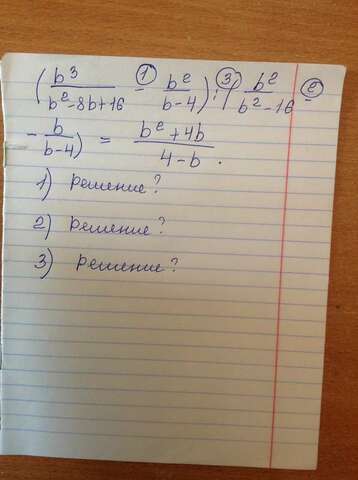 (b³/(b²-8b+16) -① b²/(b-4)) :③ (b²/(b²-16) -②
- b/(b-4)) = (b²+4b)/(4-b).
1) Решение?
2) Решение?
3) Решение?